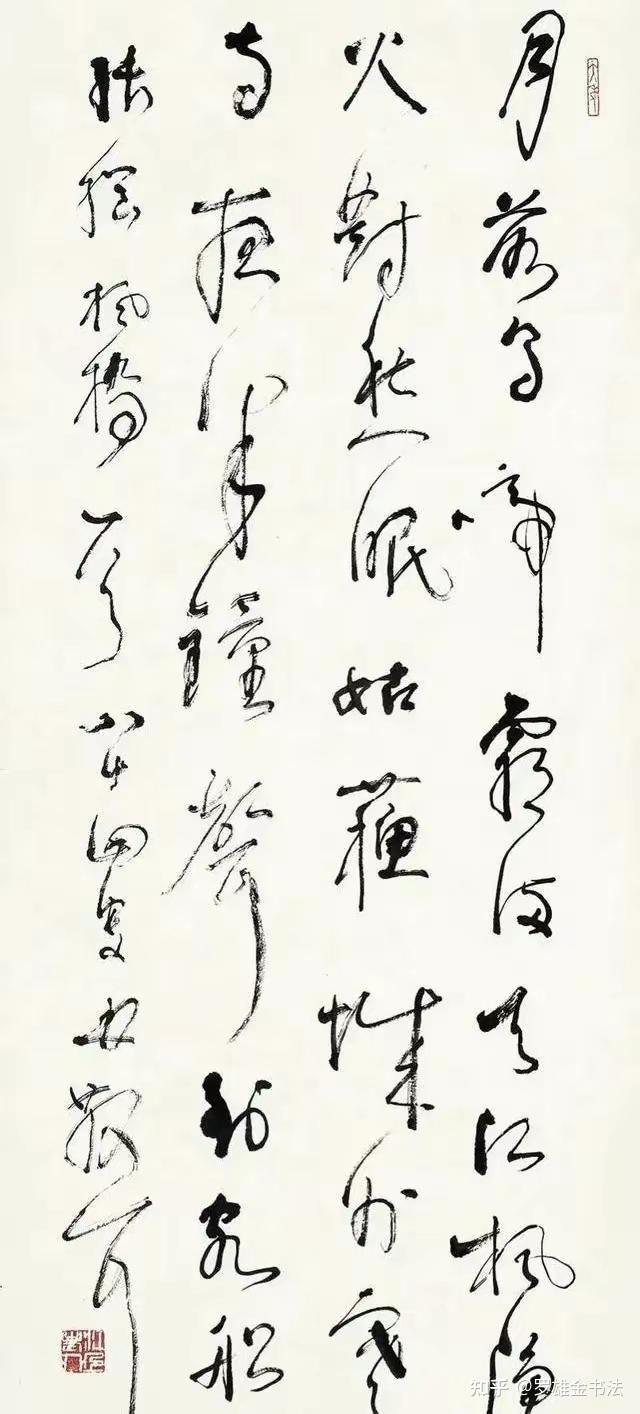 月落烏啼霜滿天江楓漁
火對愁眠姑蘇城外寒
寺夜半鐘聲到客船
張繼楓橋一首八十四叟散耳
知乎 @罗雄金书法